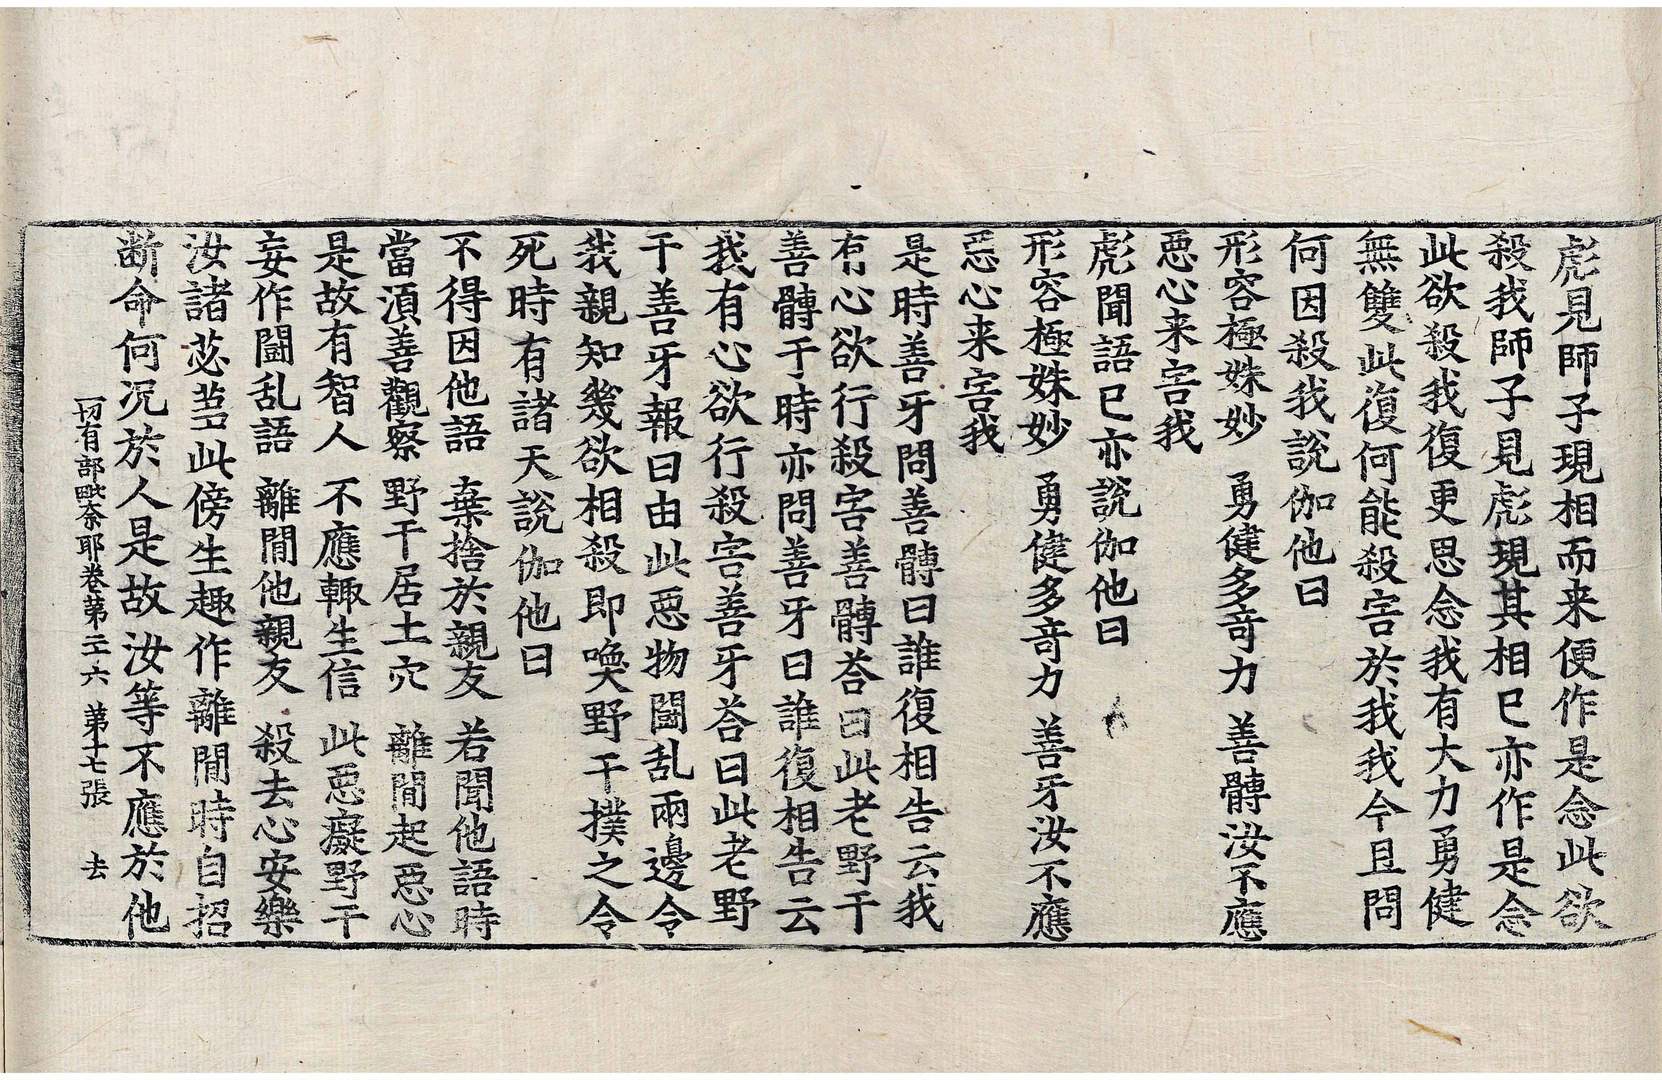 彪見師子現相而来便作是念此欲
殺我師子見彪現其相已亦作是念
此欲殺我復更思念我有大力勇健
無雙此復何能殺害於我我今且問
何因殺我說伽他曰
形容極姝妙 勇健多竒力 善髆汝不應
惡心来害我
彪聞語已亦說伽他曰
形容極姝妙 勇健多竒力 善牙汝不應
惡心来害我
是時善牙問善髆曰誰復相告云我
有心欲行殺害善髆荅曰此老野干
善髆于時亦問善牙曰誰復相告云
我有心欲行殺害善牙荅曰此老野
干善牙報曰由此惡物鬪乱兩邊令
我親知幾欲相殺即喚野干撲之令
死時有諸天說伽他曰
不得因他語 棄捨於親友 若聞他語時
當湏善觀察 野干居土穴 離間起惡心
是故有智人 不應輒生信 此惡癡野干
妄作鬪乱語 離間他親友 殺去心安樂
汝諸苾芻此傍生趣作離間時自招
断命何况於人是故汝等不應於他
一切有部毗奈耶卷第二十六 第十七張 去